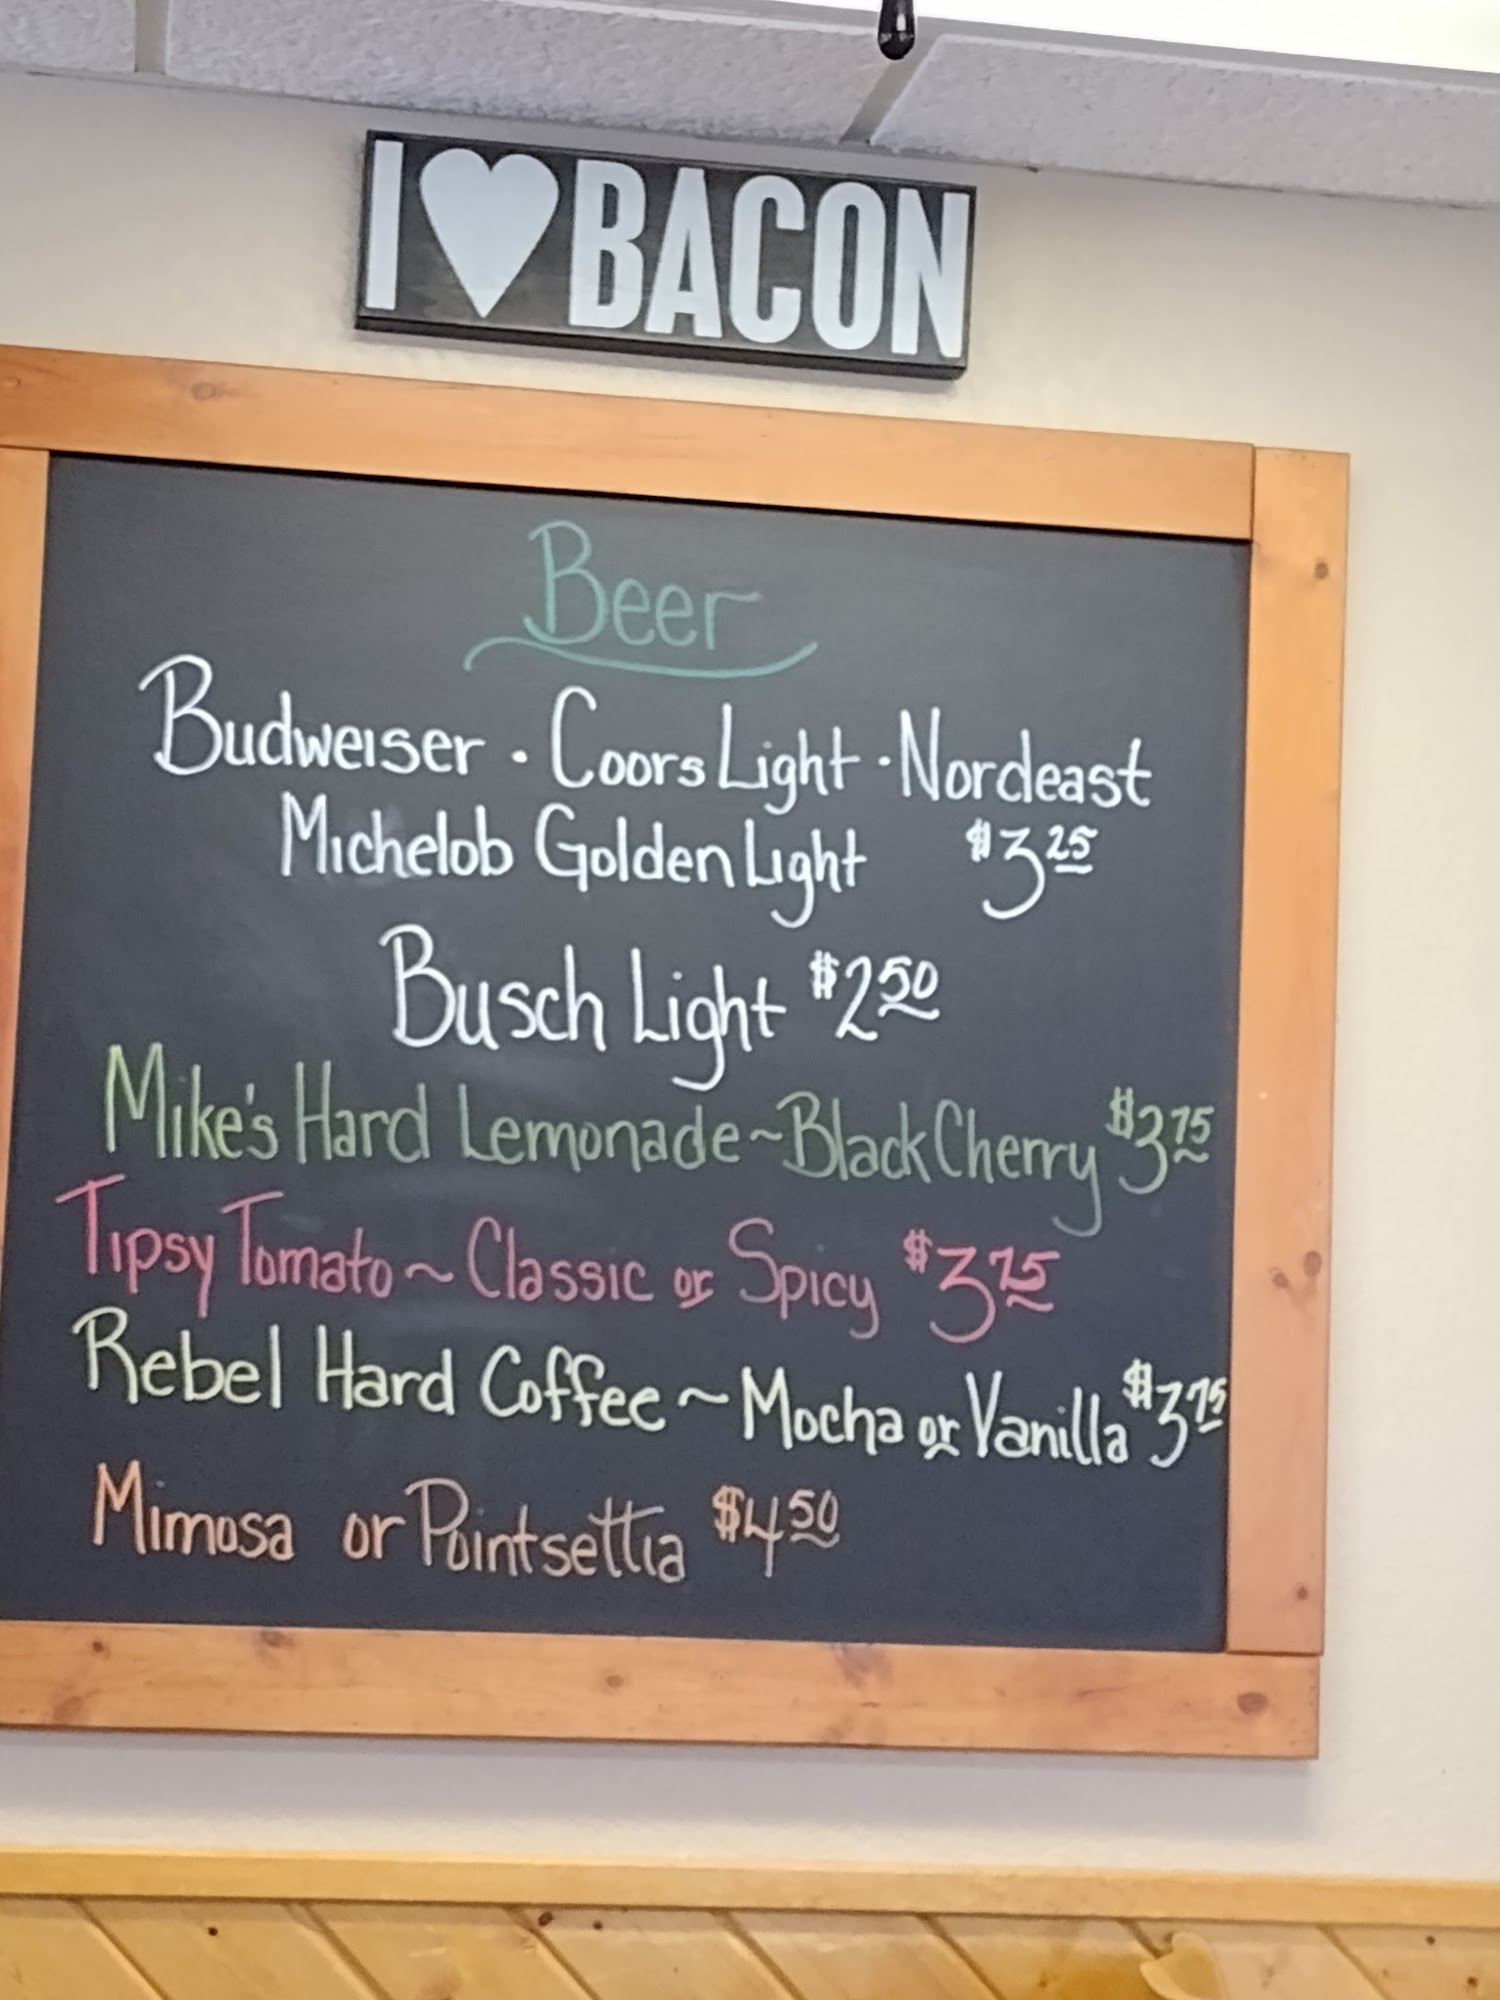 I ♥ BACON
Beer
Budweiser · Coors Light · Nordeast
Michelob Golden Light $3.25
Busch Light $2.50
Mike's Hard Lemonade ~ Black Cherry $3.75
Tipsy Tomato ~ Classic or Spicy $3.75
Rebel Hard Coffee ~ Mocha or Vanilla $3.75
Mimosa or Pointsettia $4.50